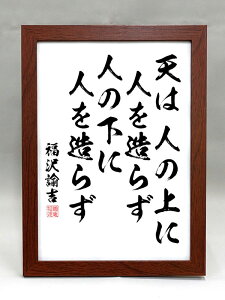 天は 人の上に
人を造らず
人の下に
人を造らず
福沢諭吉